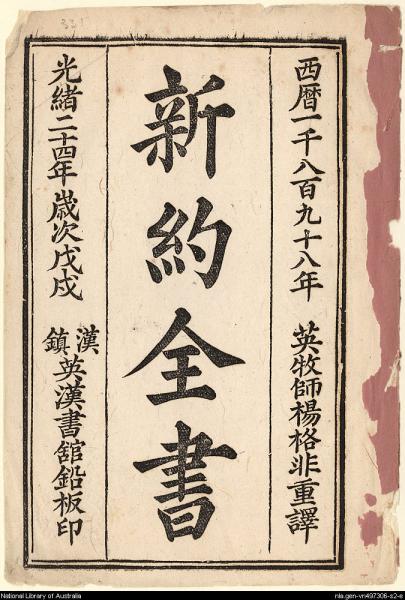 西暦一千八百九十八年 英牧師楊格非重譯
新約全書
光緒二十四年歲次戊戌 漢鎮英漢書舘鉛板印
National Library of Australia
nla.gen-vn497306-s2-e